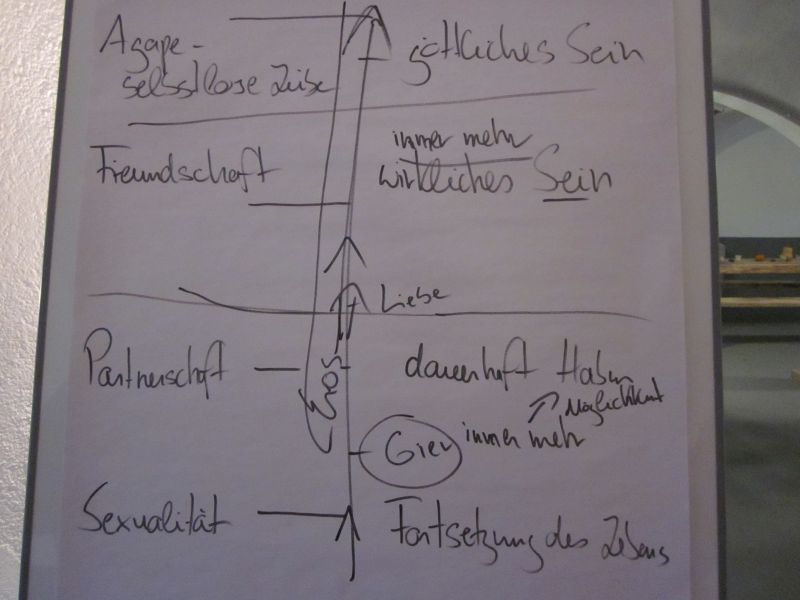 Agape -
selbstlose Liebe
göttliches Sein
Freundschaft
immer mehr
wirkliches Sein
Liebe
Partnerschaft
Eros
dauerhaft Haben
Möglichkeit
Gier
immer mehr
Sexualität
Fortsetzung des Lebens